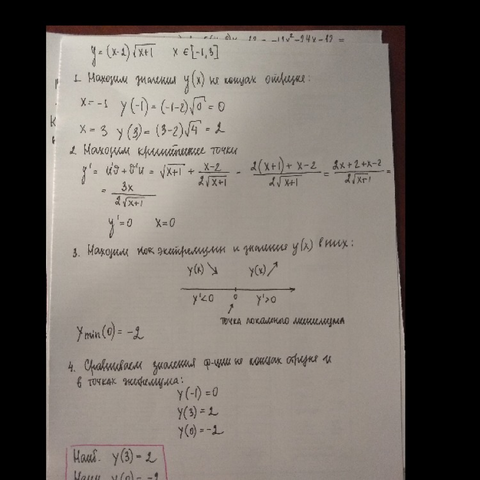 -12x²-24x-12 =
y = (x-2)√(x+1) x ∈ [-1,3]
1. Находим значения y(x) на концах отрезка:
x = -1 y(-1) = (-1-2)√0 = 0
x = 3 y(3) = (3-2)√4 = 2
2. Находим критические точки
y' = u'v + v'u = √(x+1) + (x-2)/(2√(x+1)) = (2(x+1) + x-2)/(2√(x+1)) = (2x+2+x-2)/(2√(x+1)) =
= 3x/(2√(x+1))
y' = 0 x = 0
3. Находим лок экстремумы и значения y(x) в них:
y(x) ↘ y(x) ↗
y' < 0 0 y' > 0
точка локального минимума
y min(0) = -2
4. Сравниваем значения ф-ции на концах отрезка и
в точках экстремума:
y(-1) = 0
y(3) = 2
y(0) = -2
Наиб. y(3) = 2
Наим. y(0) = -2